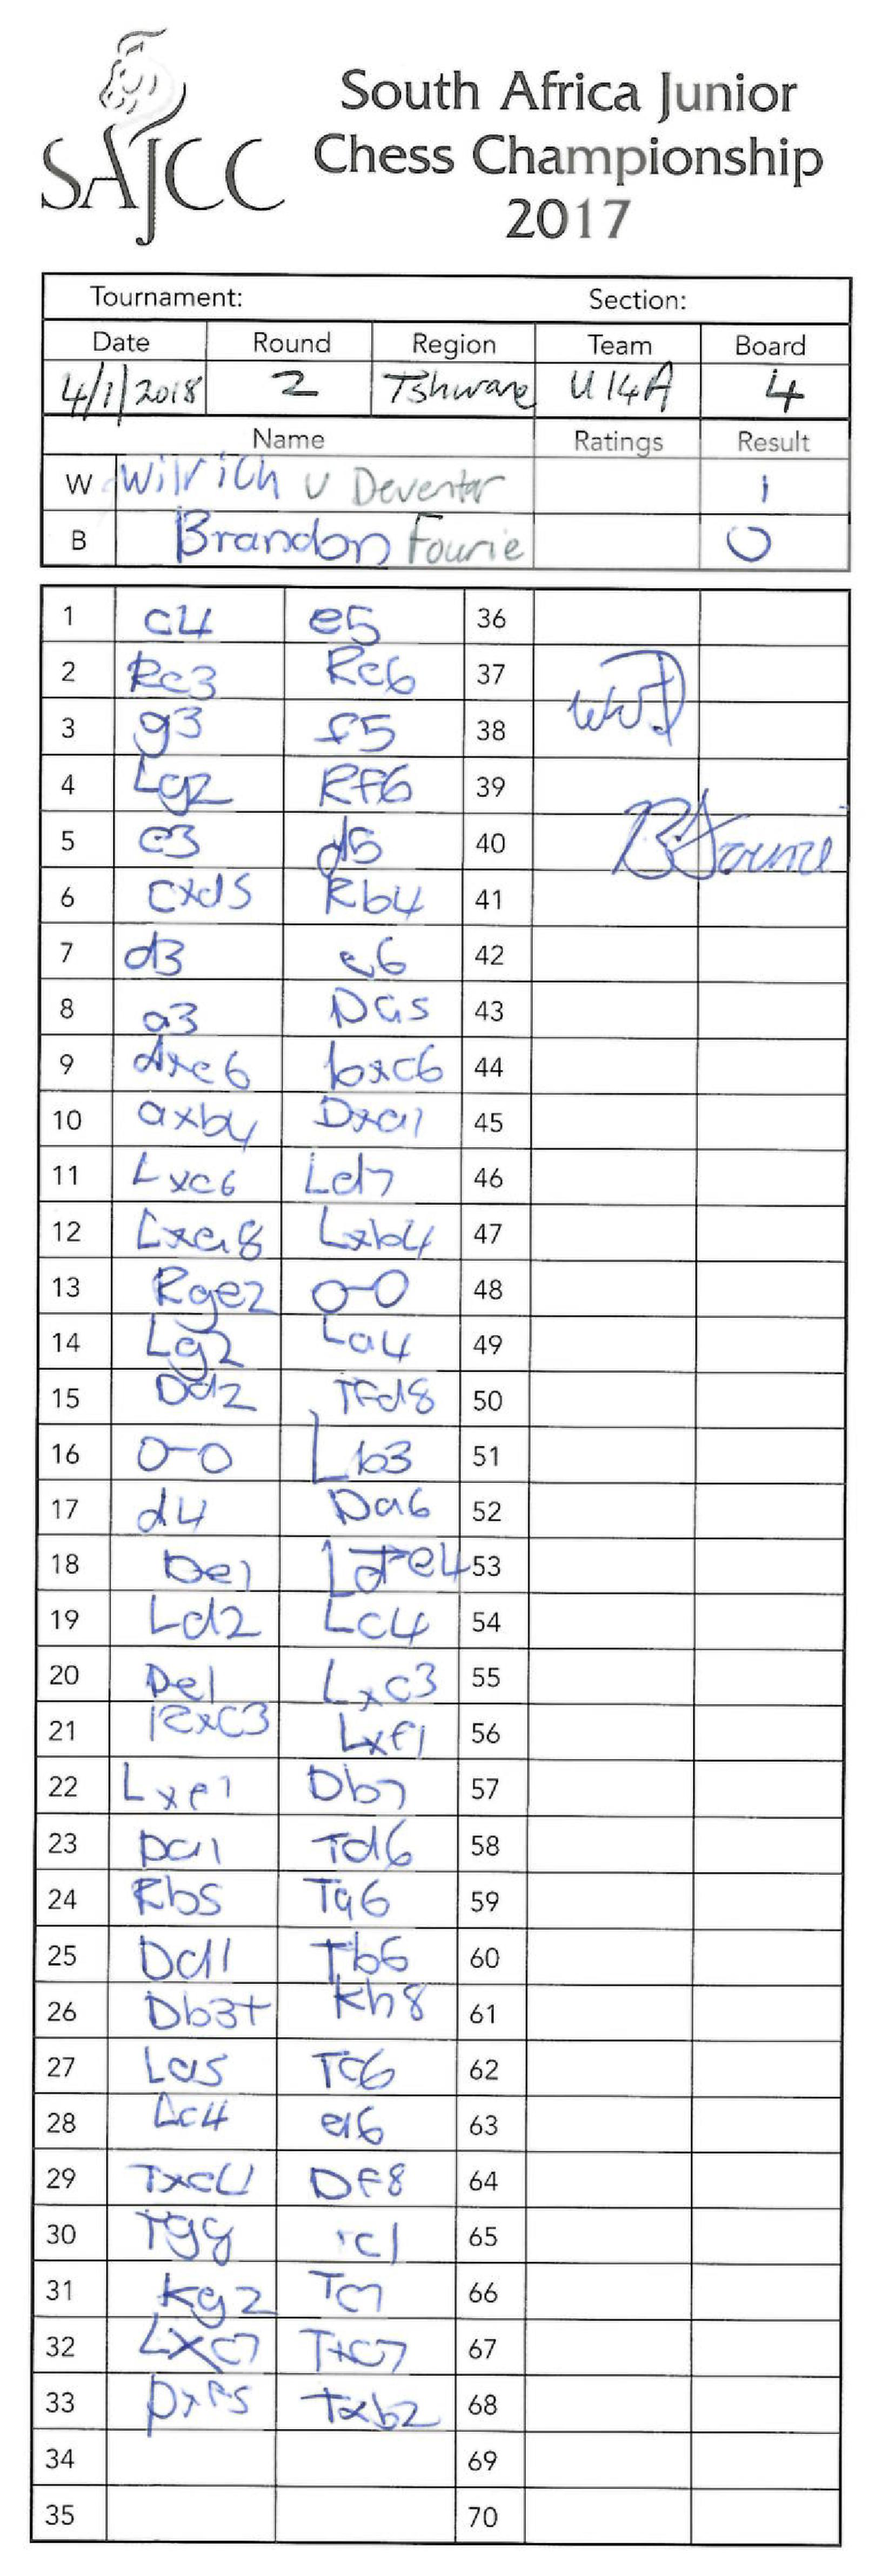 SAJCC
South Africa Junior
Chess Championship
2017
Tournament: Section:
Date Round Region Team Board
4/1/2018 2 Tshwane U14A 4
Name Ratings Result
W Wilrich v Deventer 1
B Brandon Fourie 0
1 c4 e5 36
2 Rc3 Rc6 37
3 g3 f5 38
4 Lg2 Rf6 39
5 e3 d5 40
6 cxd5 Rb4 41
7 d3 c6 42
8 a3 Da5 43
9 dxc6 bxc6 44
10 axb4 Dxa1 45
11 Lxc6 Ld7 46
12 Lxa8 Lxb4 47
13 Rge2 0-0 48
14 Lg2 La4 49
15 Dd2 Tfd8 50
16 0-0 Lb3 51
17 d4 Da6 52
18 De1 53
19 Ld2 Lc4 54
20 De1 Lxc3 55
21 Rxc3 Lxf1 56
22 Lxe1 Db7 57
23 Da1 Td6 58
24 Rb5 Ta6 59
25 Dd1 Tb6 60
26 Db3+ Kh8 61
27 La5 Tc6 62
28 Rc4 a6 63
29 Txc4 Df8 64
30 Tg8 Tc1 65
31 Kg2 Tc7 66
32 Lxc7 Txc7 67
33 Dxf5 Txb2 68
34 69
35 70
B Fourie